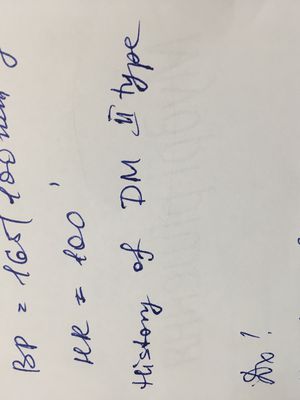 BP = 165/100 mm g
HR = 100'
History of DM II type